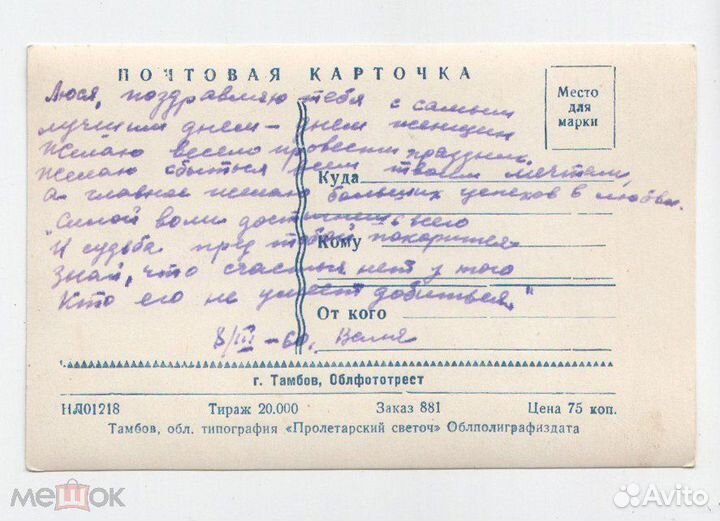 ПОЧТОВАЯ КАРТОЧКА
Место
для
марки
Люся, поздравляю тебя с самым
лучшим днем – днем женщин
Желаю весело провести праздник.
Желаю сбыться всем твоим мечтам,
а главное желаю больших успехов в любви.
"Силой воли достигнешь всего
И судьба пред тобой покорится
Знай, что счастья нет у того
Кто его не умеет добиться."
8/III – 60. Валя
Куда
Кому
От кого
г. Тамбов, Облфототрест
НЛ01218 Тираж 20.000 Заказ 881 Цена 75 коп.
Тамбов, обл. типография «Пролетарский светоч» Облполиграфиздата
мешок
Avito